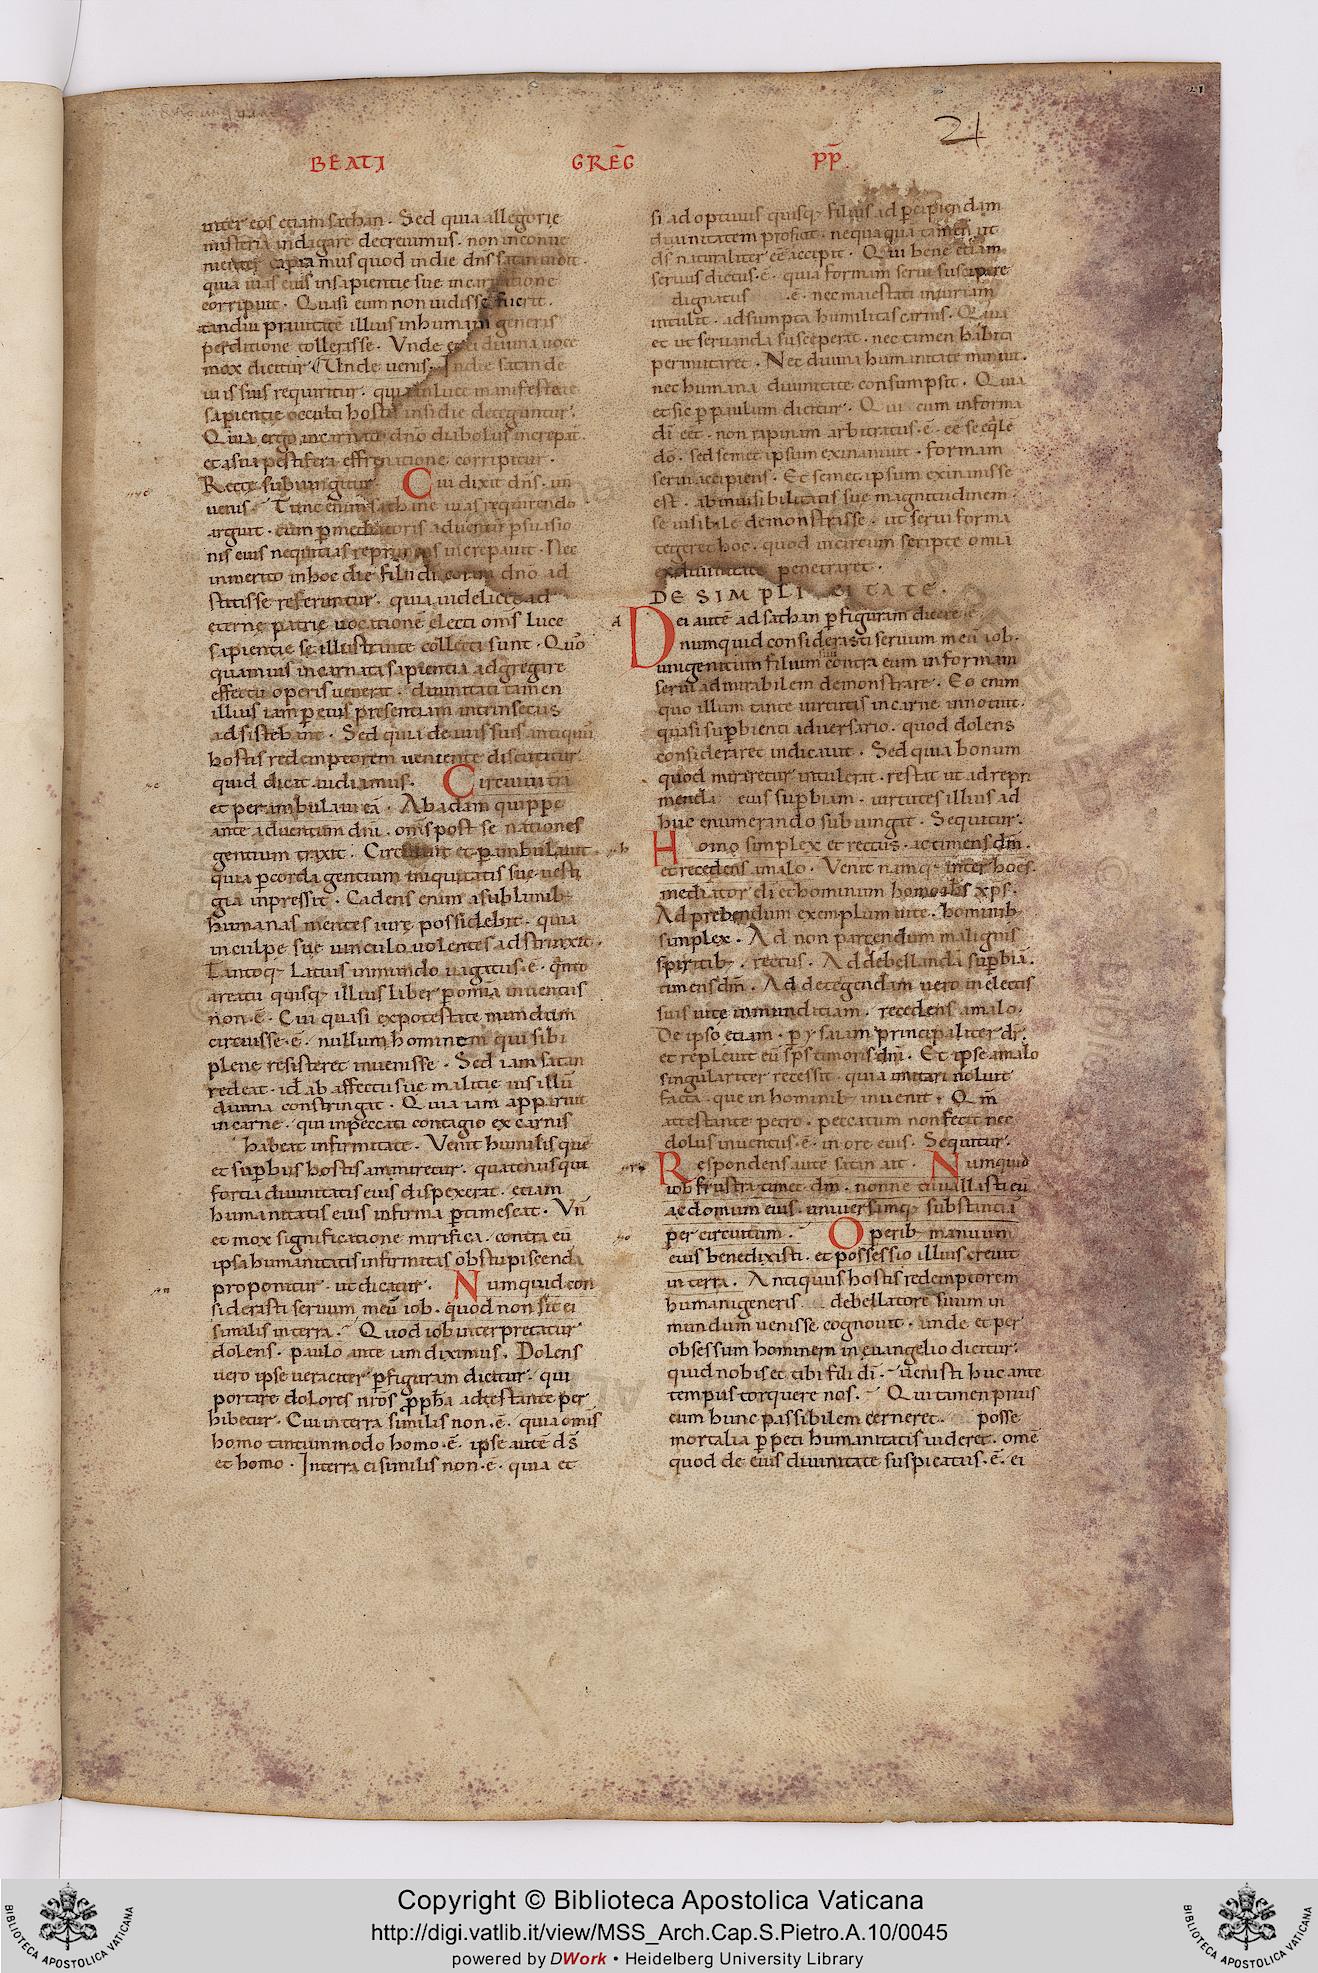 21
21
BEATI GREḠ PP̄.
inter eos etiam sathan. Sed quia allegorię
misteria indagare decreuimus. non inconue
nienter capiamus quod in die dn̄s satan uidit.
quia uias eius in sapientie sue incarnatione
corripuit. Quasi eum non uidisse fuerit.
tandiu prauitatē illius in humani generis
perditione tollerasse. Vnde et ei diuina uoce
mox dicitur. Unde uenis. In die satan de
uiis suis requiritur. quia in luce manifestate
sapientie occulti hostis insidie deteguntur.
Quia ergo incarnato dn̄o diabolus increpat̄.
et a sua pestifera effrenatione corripitur.
Recte subiungitur. Cui dixit dn̄s. un
uenis. Tunc enim sathane uias requirendo
arguit. cum p̄ mediatoris aduentū p̄suasio
nis eius nequitias reprimens increpauit. Nec
inmerito in hoc die filii dī coram dn̄o ad
stitisse referuntur. quia uidelicet ad
eterne patrie uocationē electi om̄s luce
sapientie se illustrante collecti sunt. Quō
quamuis incarnata sapientia adgregare
effectu operis uenerat. diuinitati tamen
illius iam p̄ eius presentiam intrinsecus
adsistebant. Sed quia de uiis suis antiquus
hostis redemptorem ueniente discutitur.
quid dicat audiamus. Circuiui trā
et perambulaui eā. Ab adam quippe
ante aduentum dnī. om̄s post se nationes
gentium traxit. Circuiuit et p̄ambulauit.
quia p̄ corda gentium iniquitatis sue uesti
gia inpressit. Cadens enim a sublimib;
humanas mentes iure possidebit. quia
in culpe sue uinculo uolentes adstrinxit.
Tantoq; latius in mundo uagatus.ē. q̄nto
a reatu quisq; illius liber p̄ omīa inuentus
non.ē. Cui quasi ex potestate mundum
circuisse.ē. nullum hominem qui sibi
plene resisteret inuenisse. Sed iam satan
redeat. id ab affectu sue malitie uis illū
diuina constringat. Quia iam apparuit
in carne. qui in peccati contagio ex carnis
habeat infirmitate. Venit humilis que
et sup̄bus hostis ammiretur. quatenus qui
fortia diuinitatis eius dispexerat. etiam
humanitatis eius infirma p̄timescat. Vn̄
et mox significatione mirifica. contra eū
ipsa humanitatis infirmitas obstupiscenda
proponitur. ut dicatur. Numquid con
siderasti seruum meū iob. quod non sit ei
similis in terra. Quod iob interpretatur
dolens. paulo ante iam diximus. Dolens
uero ipse ueraciter p̄ figuram dicitur. qui
portare dolores nr̄os p̄pp̄ha adtestante per
hibetur. Cui in terra similis non.ē. quia omīs
homo tantummodo homo.ē. ipse autē ds̄
et homo. In terra ei similis non.ē. quia et
si adoptiuus quisq; filius ad p̄cipiendam
diuinitatem proficit. nequaquā tamen ut
ds̄ naturaliter eē accipit. Qui bene etiam
seruus dictus.ē. quia formam serui suscipere
dignatus .ē. nec maiestati iniuriam
intulit. adsumpta humilitas carnis. Quia
et ut seruanda susciperat. nec tamen habita
permutaret. Nec diuina humanitate minuit.
nec humana diuinitate consumpsit. Quia
et sic p̄ paulum dicitur. Qui cum in forma
dī eēt. non rapinam arbitratus.ē. eē se eqlē
dō. sed semet ipsum exinaniuit. formam
serui accipiens. Et semet ipsum exinanisse
est. ab inuisibilitatis sue magnitudinem.
se uisibile demonstrasse. ut serui forma
tegeret hoc. quod incircumscripte omīa
ex diuinitate penetraret.
DE SIMPLICITATE.
A Dei autē ad sathan p̄ figuram dicere.ē.
numquid considerasti seruum meū iob.
unigenitum filium suū contra eum in formam
serui admirabilem demonstrare. Eo enim
quo illum tante uirtutis in carne innotuit.
quasi sup̄bienti aduersario. quod dolens
consideraret indicauit. Sed quia bonum
quod miraretur intulerat. restat ut ad repri
menda eius sup̄biam. uirtutes illius ad
huc enumerando subiungat. Sequitur.
Homo simplex et rectus. ac timens dm̄.
et recedens a malo. Venit namq; inter hoēs
mediator dī et hominum homo ihs xp̄s.
Ad prebendum exemplum uite. hominib;
simplex. Ad non parcendum malignis
spiritib;. rectus. Ad debellanda sup̄bia.
timens dm̄. Ad detegendam uero in electis
suis uite inmunditiam. recedens a malo.
De ipso etiam. p̄ ysaiam principaliter dr̄.
et repleuit eū sp̄s timoris dnī. Et ipse a malo
singulariter recessit. quia imitari noluit
facta. que in hominib; inuenit. Qm̄
attestante petro. peccatum non fecit nec
dolus inuentus.ē. in ore eius. Sequitur.
Respondens autē satan ait. Numquid
iob frustra timet dm̄. nonne tu uallasti eū
ac domum eius. uniuersamq; substantiā
per circuitum. Operib; manuum
eius benedixisti. et possessio illius creuit
in terra. Antiquus hostis redemptorem
humani generis debellatore suum in
mundum uenisse cognouit. unde et per
obsessum hominem in euangelio dicitur.
quid nobis et tibi fili dī. uenisti huc ante
tempus torquere nos. Qui tamen prius
cum hunc passibilem cerneret. posse
mortalia p̄peti humanitatis uideret. omē
quod de eius diuinitate suspicatus.ē. ei
Copyright © Biblioteca Apostolica Vaticana
http://digi.vatlib.it/view/MSS_Arch.Cap.S.Pietro.A.10/0045
powered by DWork • Heidelberg University Library
BIBLIOTECA APOSTOLICA VATICANA
BIBLIOTECA APOSTOLICA VATICANA